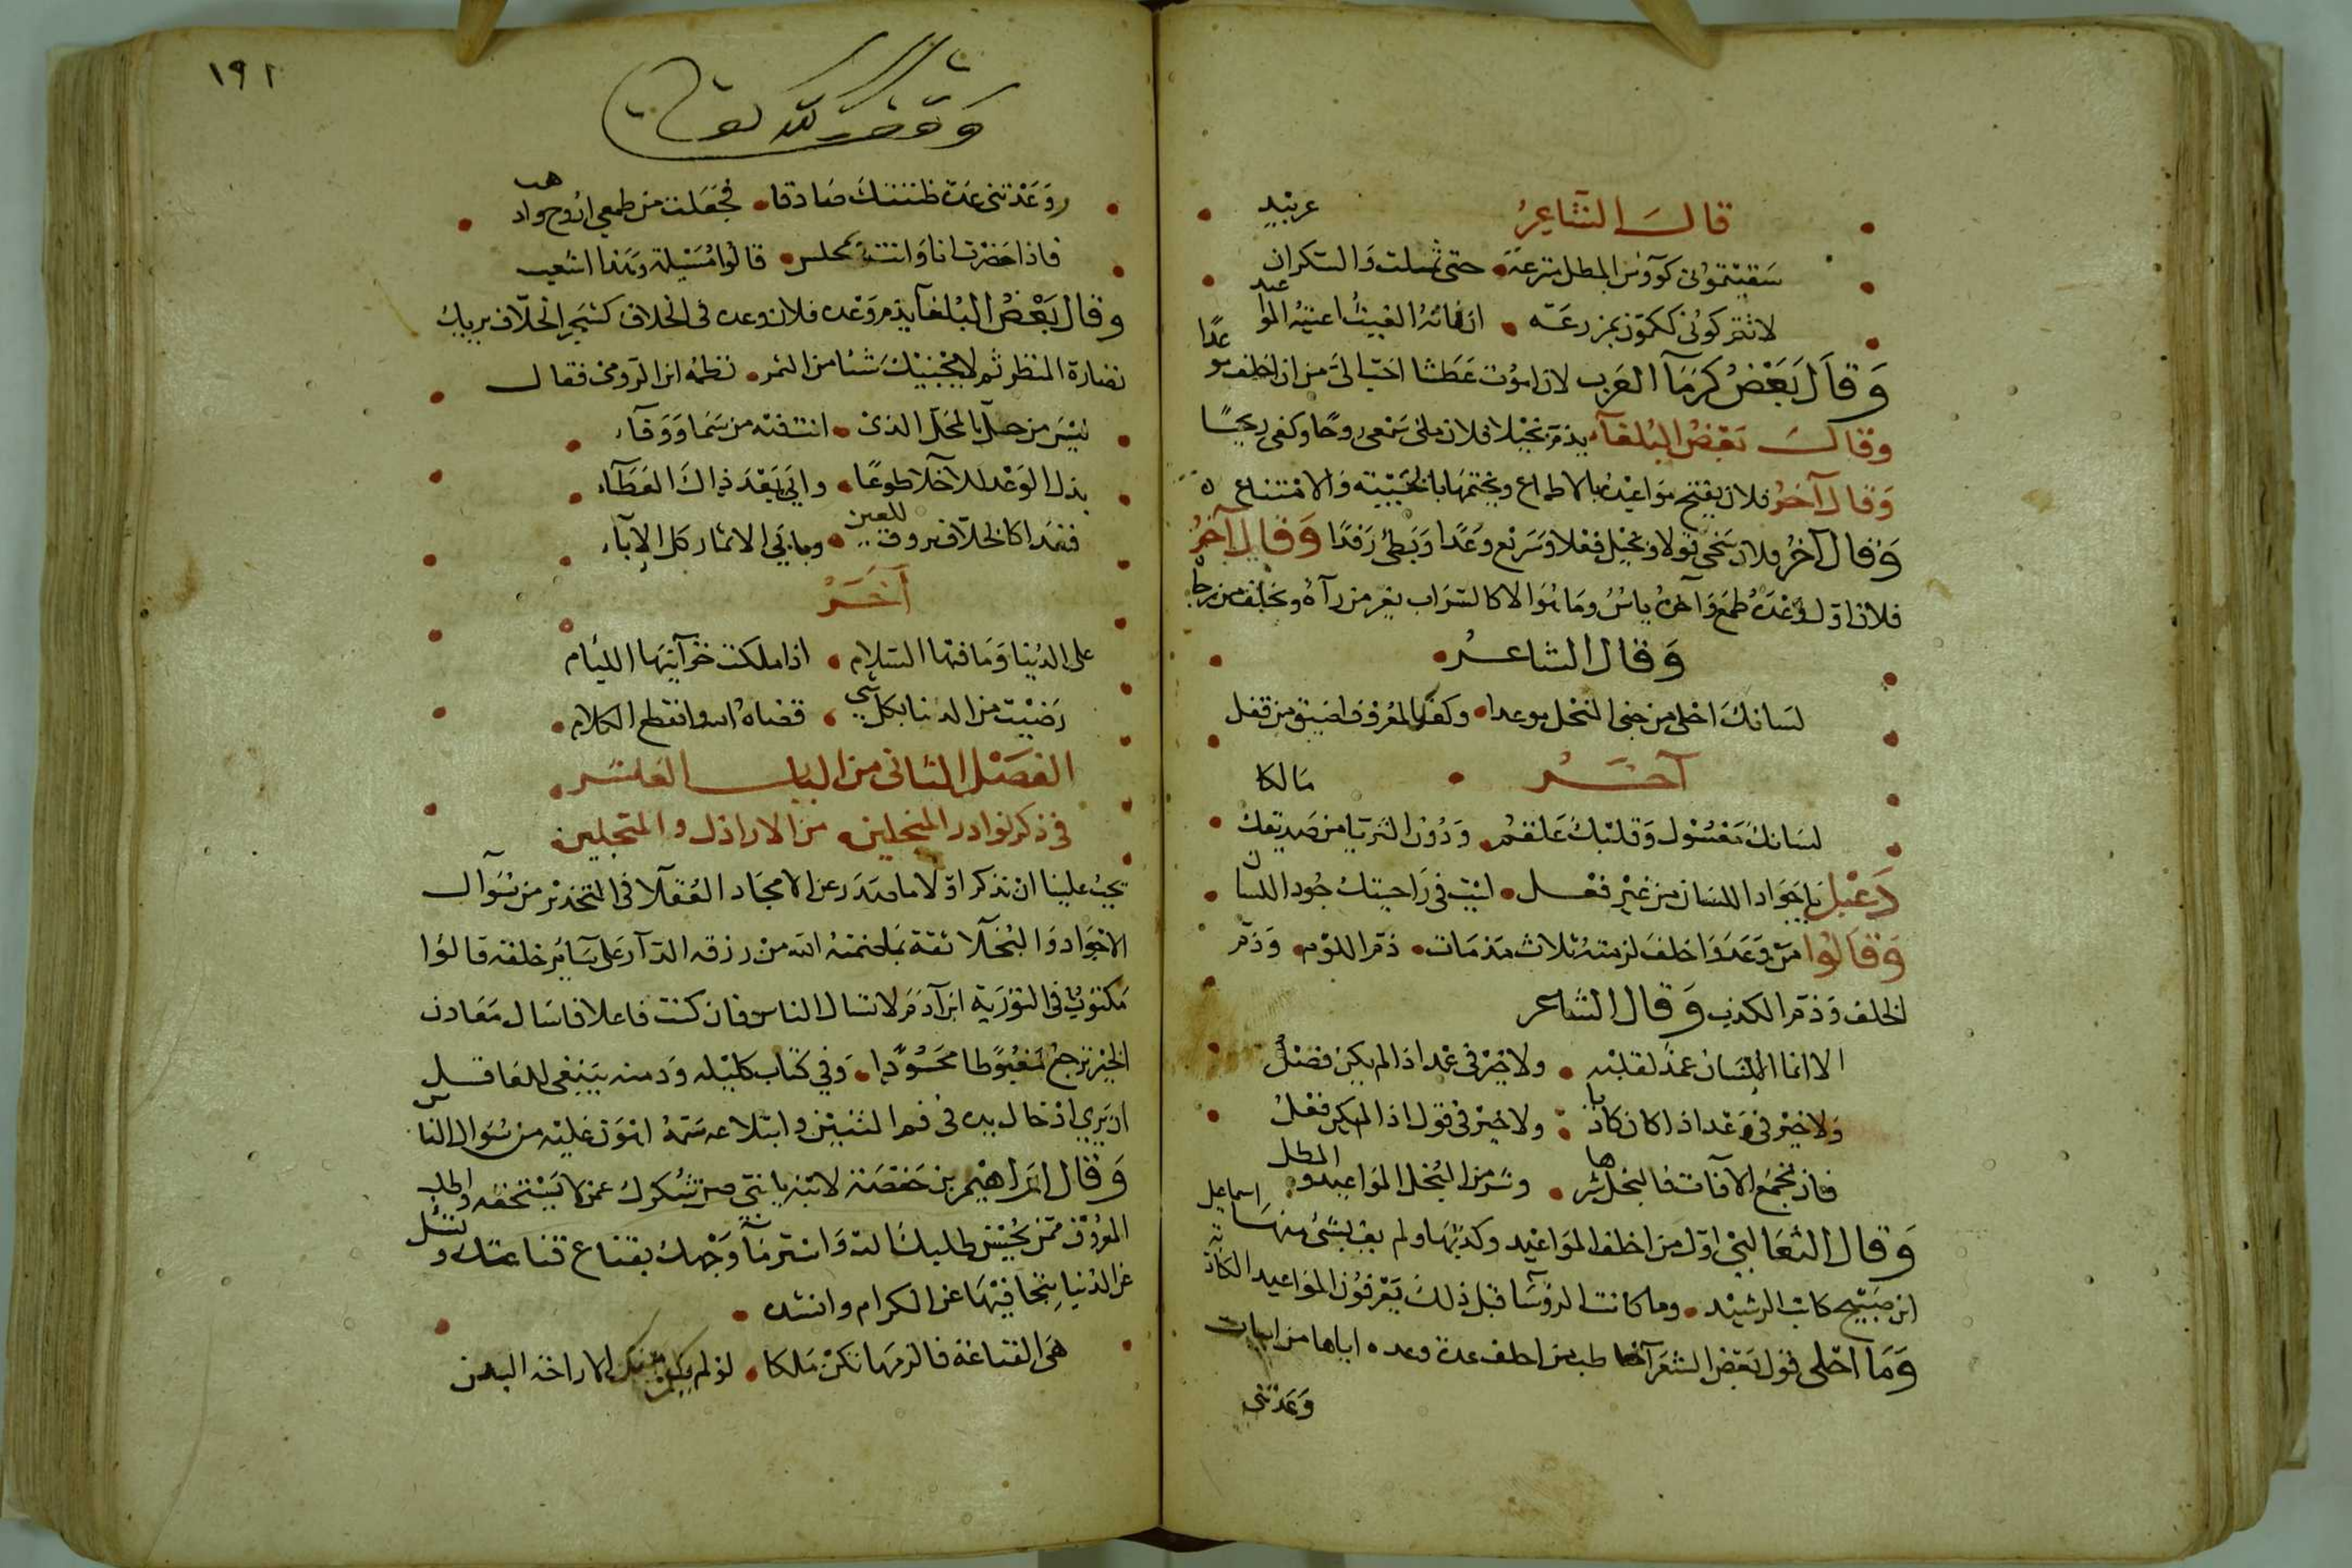 قال الشاعر
سقيتموني كؤوس المطل مترعة • حتى ثملت والسكران عربيد
لا تتركوني ككمون بمزرعة • ان فاته الغيث اغنته المواعيد
وقال بعض كرماء العرب لان اموت عطشا احب الي من ان اخلف موعدا
وقال بعض البلغاء يذم بخيلا فلان ملئ سمعي روحا وكفي ريحا
وقال آخر فلان يفتح مواعيده بالاطماع ويختمها بالخيبة والامتناع ه
وقال آخر فلان سخي قولا وبخيل فعلا وسريع وعدا وبطئ رفدا وقال آخر
فلان اول وعده طمع وآخره ياس وما هو الا كالسراب يغر من رآه ويخلف من رجاه
وقال الشاعر •
لسانك احلى من جنى النحل موعدا • وكفك بالمعروف اضيق من قفل
آخر •
لسانك معسول وقلبك علقم • ودون الثريا من صديقك مالكا
دعبل يا جواد اللسان من غير فعل • ليت في راحيتك جود اللسان
وقالوا من وعد واخلف لزمته ثلاث مذمات • ذم اللوم • وذم
الخلف وذم الكذب وقال الشاعر
الا انما الانسان غمد لقلبه • ولا خير في غمد اذا لم يكن فصل
ولا خير في وعد اذا كان كاذبا • ولا خير في قول اذا لم يكن فعل
فان تجمع الآفات فالبخل شرها • وشر من البخل المواعيد والمطل
وقال الثعالبي اول من اخلف المواعيد وكذبها ولم يف بشئ منها اسماعيل
ابن صبيح كاتب الرشيد • وما كانت الروسآ قبل ذلك يعرفون المواعيد الكاذبة
وما احلى قول بعض الشعرآ من اخلف عدة وعده اياها من ابيات
وعدتني
١٩١
وقف لله تعالى
ووعدتني عدة ظننتك صادقا • فجعلت من طمعي اروح واذهب
فاذا حضرت انا وانت بمجلس • قالوا مسيلمة وهذا اشعب
وقال بعض البلغآ يذم وعده فلان وعده في الخلاف كشجر الخلاف يريك
نضارة المنظر ثم لا يجنيك شئا من الثمر • نظمه ابن الرومي فقال
ليس من حل بالمحل الذي • انت فيه من سما ووفآء
بذل الوعد للاخلا طوعا • وابى بعد ذاك العطآء
فغدا كالخلاف يروق للعين • ويابى الاثمار كل الابآء
آخر
على الدنيا وما فيها السلام • اذا ملكت خزآينها الليام
رضيت من الدنيا بكل شي • قضاه الله وانقطع الكلام •
الفصل الثاني من الباب العاشر •
في ذكر نوادر المبخلين من الاراذل والمتجلين
يجب علينا ان نذكر اولا ما صدر عن الامجاد العقلا في التحذير من سوآل
الاجواد والبخلا ثقة بما ضمنه الله من رزقه الدآر على سآئر خلقه قالوا
مكتوب في التورية ابن آدم لا تسال الناس فان كنت فاعلا فاسال معادن
الخير ترجع مغبوطا محسودا • وفي كتاب كليله ودمنه ينبغي للعاقل
ان يرى ادخال يده في فم التنين وابتلاعه سمه اهون عليه من سوال الناس
وقال ابراهيم بن حفصة لابنه يا بني صن شكرك عمن لا يستحقه واطلب
المعروف ممن يحسن طلبك اليه واستر مآ وجهك بقناع قناعتك وتسل
عن الدنيا بتجافيها عن الكرام وانشد •
هي القناعة فالزمها تكن ملكا • لو لم يكن منك الا راحة البدن